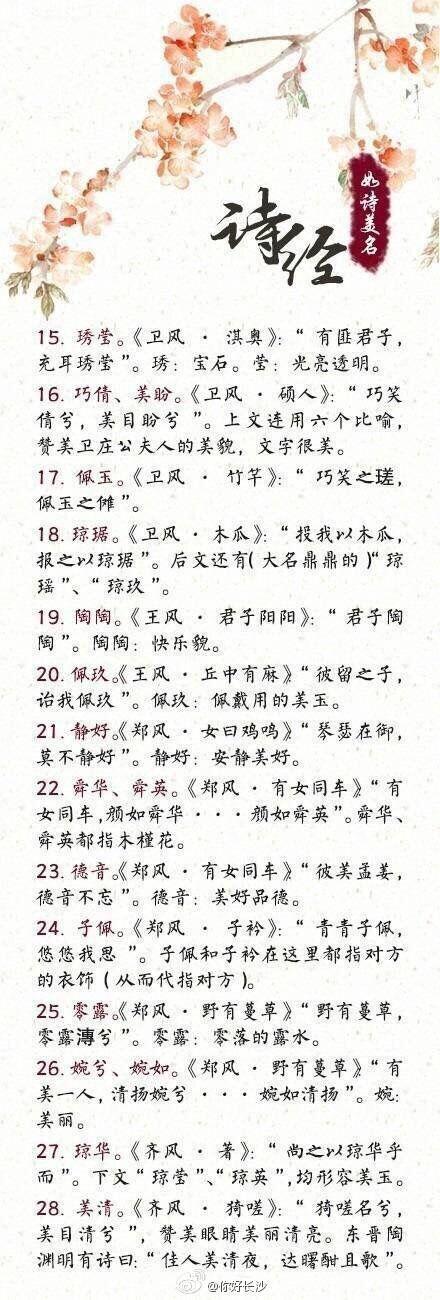 诗经
如诗美名
15. 琇莹。《卫风 · 淇奥》：“ 有匪君子，
充耳琇莹 ”。琇：宝石。莹：光亮透明。
16. 巧倩、美盼。《卫风 · 硕人》：“ 巧笑
倩兮，美目盼兮 ”。上文连用六个比喻，
赞美卫庄公夫人的美貌，文字很美。
17. 佩玉。《卫风 · 竹竿》：“ 巧笑之瑳，
佩玉之傩”。
18. 琼琚。《卫风 · 木瓜》：“ 投我以木瓜，
报之以琼琚 ”。后文还有( 大名鼎鼎的 )“ 琼
瑶 ”、“ 琼玖 ”。
19. 陶陶。《王风 · 君子阳阳》：“ 君子陶
陶 ”。陶陶：快乐貌。
20. 佩玖。《王风 · 丘中有麻》“ 彼留之子，
诒我佩玖 ”。佩玖：佩戴用的美玉。
21. 静好。《郑风 · 女曰鸡鸣》“ 琴瑟在御，
莫不静好 ”。静好：安静美好。
22. 舜华、舜英。《郑风 · 有女同车》“ 有
女同车，颜如舜华 · · · 颜如舜英 ”。舜华、
舜英都指木槿花。
23. 德音。《郑风 · 有女同车》“ 彼美孟姜，
德音不忘 ”。德音：美好品德。
24. 子佩。《郑风 · 子衿》：“ 青青子佩，
悠悠我思 ”。子佩和子衿在这里都指对方
的衣饰（ 从而代指对方）。
25. 零露。《郑风 · 野有蔓草》“ 野有蔓草，
零露漙兮 ”。零露：零落的露水。
26. 婉兮、婉如。《郑风 · 野有蔓草》“ 有
美一人，清扬婉兮 · · · 婉如清扬 ”。婉：
美丽。
27. 琼华。《齐风 · 著》：“ 尚之以琼华乎
而 ”。下文“ 琼莹 ”、“ 琼英 ”，均形容美玉。
28. 美清。《齐风 · 猗嗟》：“ 猗嗟名兮，
美目清兮 ”，赞美眼睛美丽清亮。东晋陶
渊明有诗曰：“ 佳人美清夜，达曙酣且歌 ”。
@你好长沙